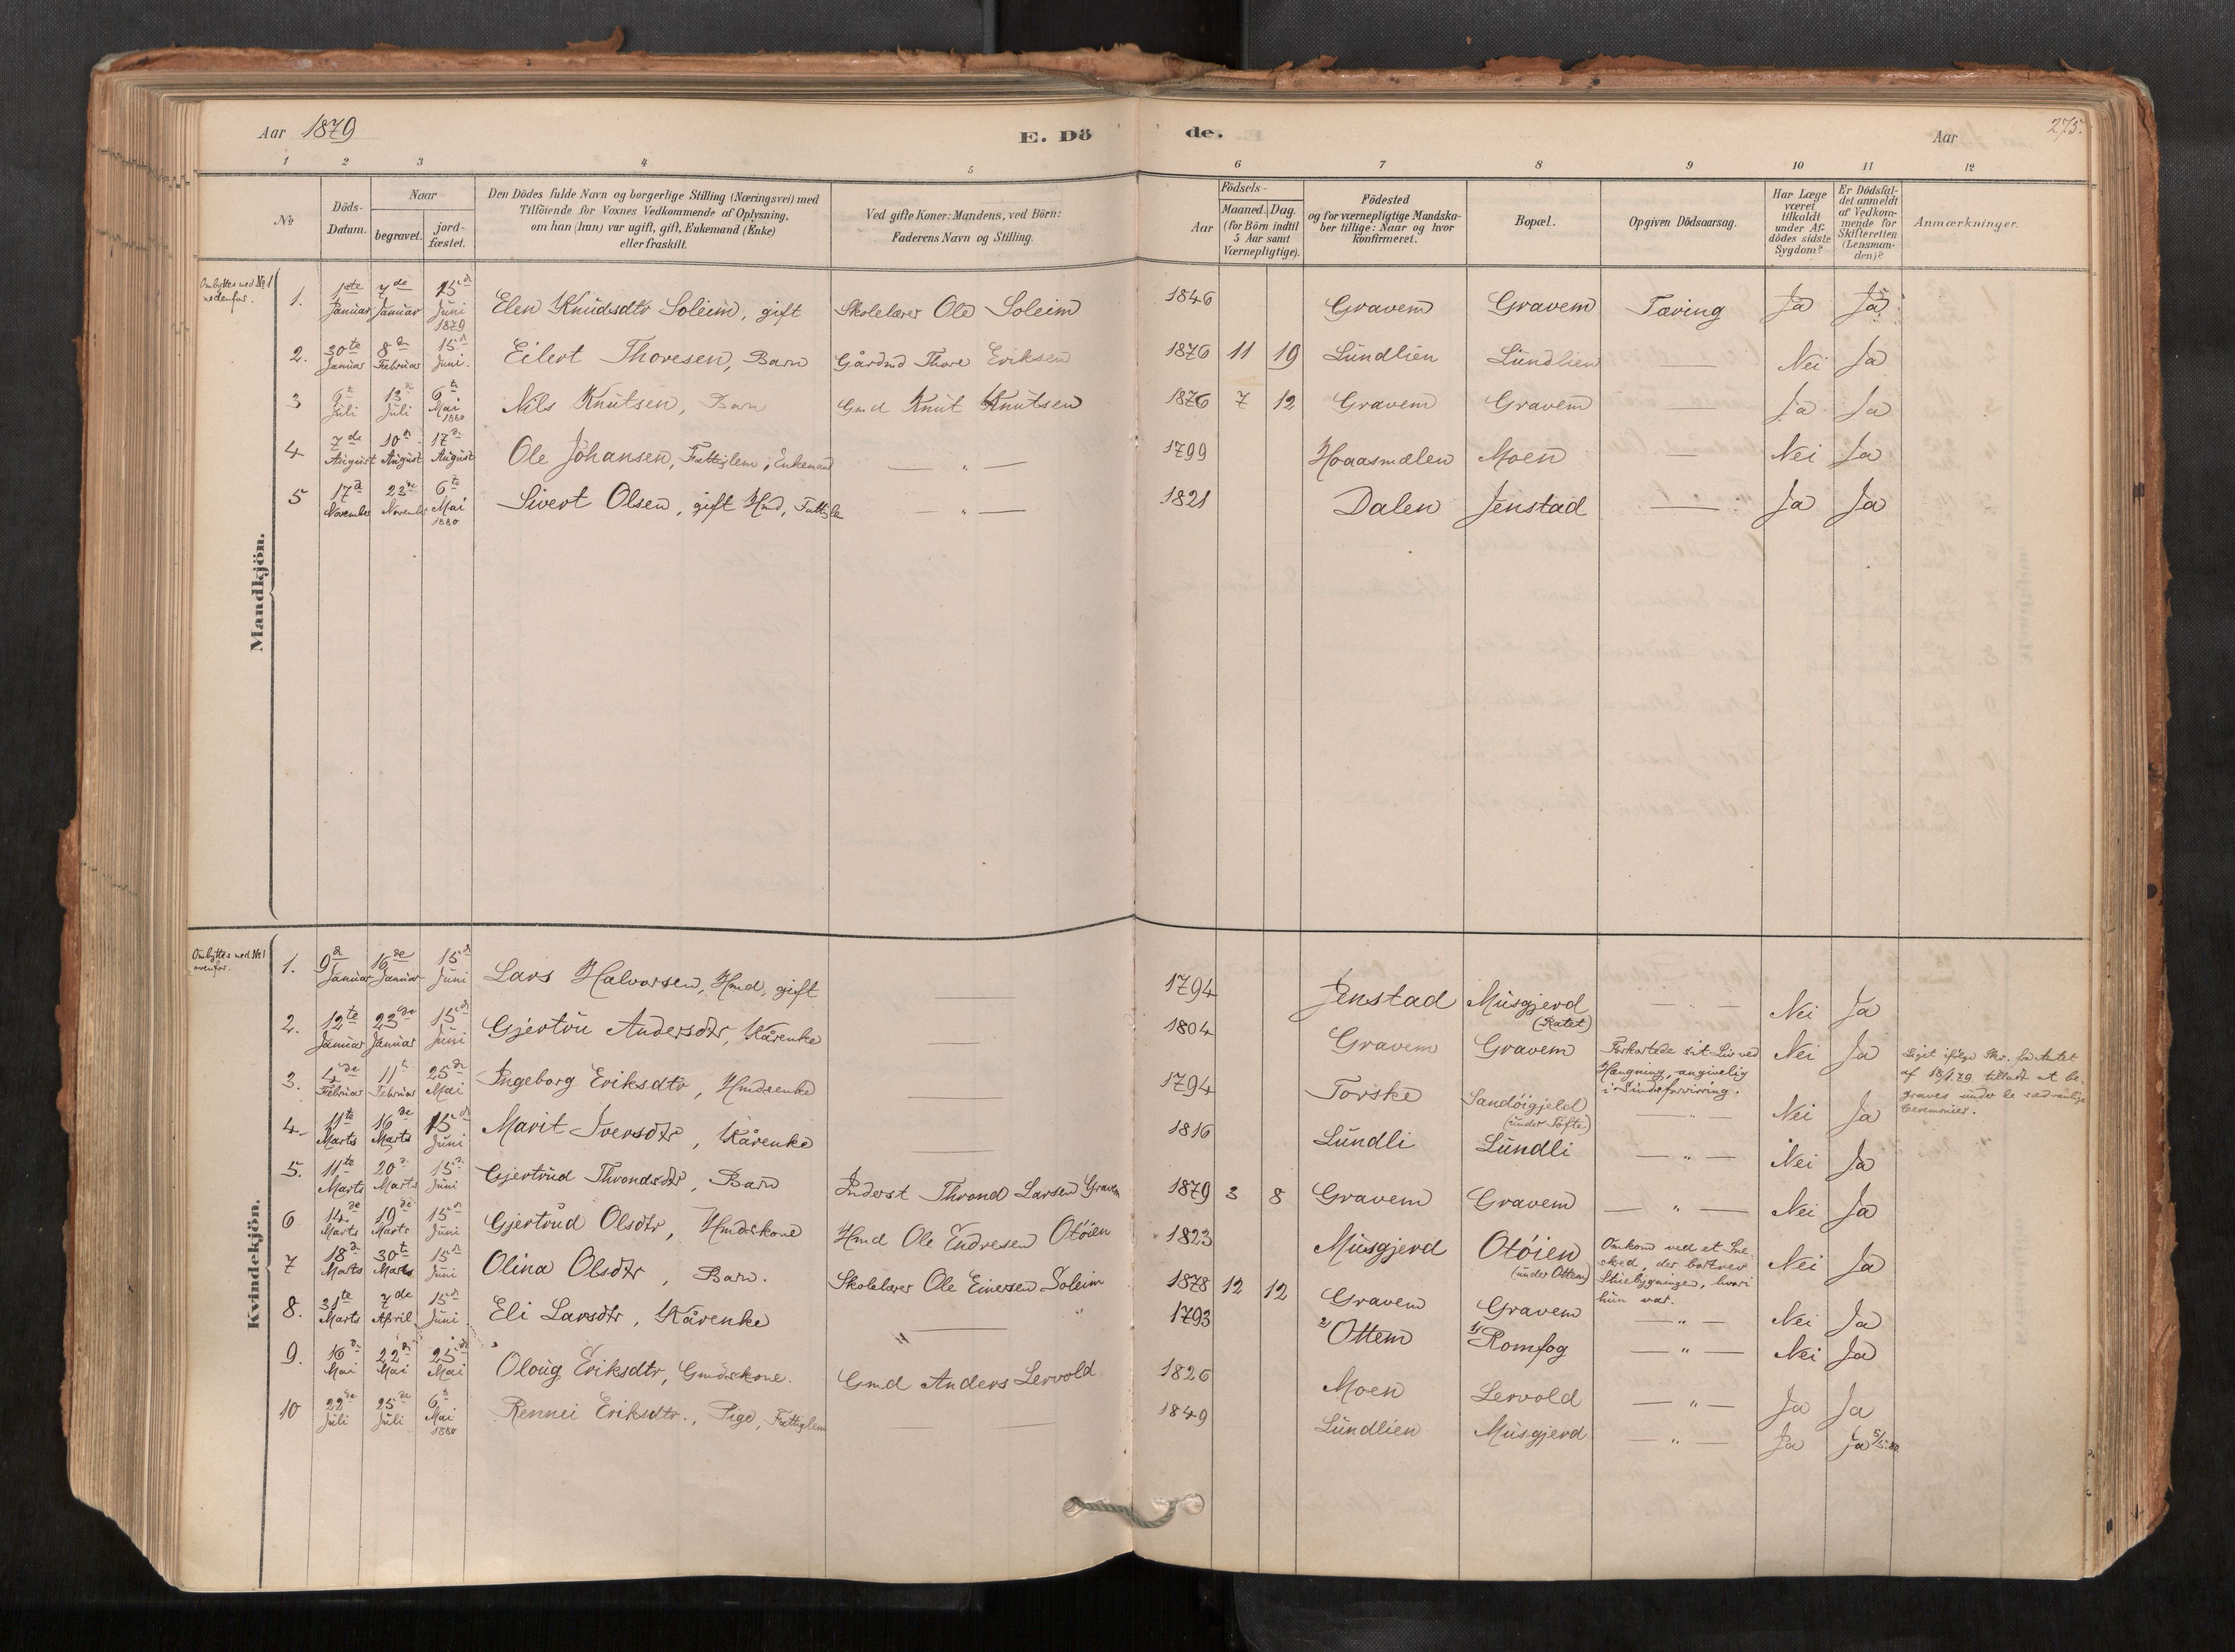 Aar 1879
E. Dö
de.
Aar
275.
1 2 3 4 5 6 7 8 9 10 11 12
No
Döds-Datum.
Naar
begravet.
jord-fæstet.
Den Dödes fulde Navn og borgerlige Stilling (Næringsvei) med
Tilföiende for Voxnes Vedkommende af Oplysning,
om han (hun) var ugift, gift, Enkemand (Enke)
eller fraskilt.
Ved gifte Koner: Mandens, ved Börn:
Faderens Navn og Stilling.
Födsels-
Aar
Maaned. Dag.
(for Börn indtil
5 Aar samt
Værnepligtige).
Födested
og for værnepligtige Mandska-
ber tillige: Naar og hvor
konfirmeret.
Bopæl.
Opgiven Dödsaarsag.
Har Læge
været
tilkaldt
under Af-
dödes sidste
Sygdom?
Er Dödsfal-
det anmeldt
af Vedkom-
mende for
Skifteretten
(Lensman-
den)?
Anmærkninger.
Mandkjön.
Ombyttes med No 1
nedenfor.
1. 1ste Januar 7de Januar 15de Juni 1879 Elen Knudsdtr Soleim, gift Skolelærer Ole Soleim 1846 Gravem Gravem Tæring Ja Ja
2. 30te Januar 8de Februar 15de Juni. Eilert Thoresen, Barn Gårdmd Thore Eriksen 1876 11 19 Lundlien Lundlien — Nei Ja
3 6te Juli 13de Juli 6te Mai 1880 Nils Knutsen, Barn Gmd Knut Knutsen 1876 7 12 Gravem Gravem — Ja Ja
4 7de August 10de August 17de August Ole Johansen, Fattiglem, Enkemand — " — 1799 Hoaasmælen Moen — Nei Ja
5 17de November 23de November 6te Mai 1880 Sivert Olsen, gift Hmd, Fattiglem — " — 1821 Dalen Jenstad — Ja Ja
Kvindekjön.
Ombyttes med No 1
ovenfor.
1. 9de Januar 16de Januar 15de Juni Lars Halvorsen, Hmd, gift — 1794 Jenstad Musgjerd (Ratet) — " — Nei Ja
2. 12te Januar 23de Januar 15de Juni Gjertru Andersdtr, Kårenke — 1804 Gravem Gravem Forkortede sit Liv ved
Hængning, angivelig
i Sindsforvirring. Nei Ja Liget ifølge Skr.
af 18/1.79 tilladt at be-
graves under de sædvanlige
Ceremonier.
3. 4de Februar 11te Februar 25de Mai Ingeborg Eriksdtr, Hmdsenke — 1794 Torske Sandöigjeld (under Tofte) — " — Nei Ja
4. 11te Marts 16de Marts 15de Juni Marit Iversdtr, Kårenke — 1816 Lundli Lundli — " — Nei Ja
5. 11te Marts 20de Marts 15de Juni Gjertrud Throndsdtr, Barn Inderst Thrond Larsen Gravem 1879 3 8 Gravem Gravem — " — Nei Ja
6 14de Marts 19de Marts 15de Juni Gjertrud Olsdtr, Hmdskone Hmd Ole Endresen Otöien 1823 Musgjerd Otöien (under Ottem) Omkom ved et Sne-
skred, der bortrev
Stuebygningen, hvori
hun var. Nei Ja
7 18de Marts 30te Marts 15de Juni Olina Olsdtr, Barn. Skolelærer Ole Einersen Soleim 1878 12 12 Gravem Gravem — " — Nei Ja
8. 31te Marts 7de April 15de Juni Eli Larsdtr, Kårenke — " 1793 2) Ottem 1) Romfog — " — Nei Ja
9. 16de Mai 22de Mai 25de Mai Oloug Eriksdtr, Gmdskone. Gmd Anders Lervold 1826 Moen Lervold — " — Ja Ja
10 22de Juli 25de Juli 6te Mai 1880 Rennei Eriksdtr., Pige, Fattiglem — — 1849 Lundlien Musgjerd — " — Ja Ja 5/5.80.